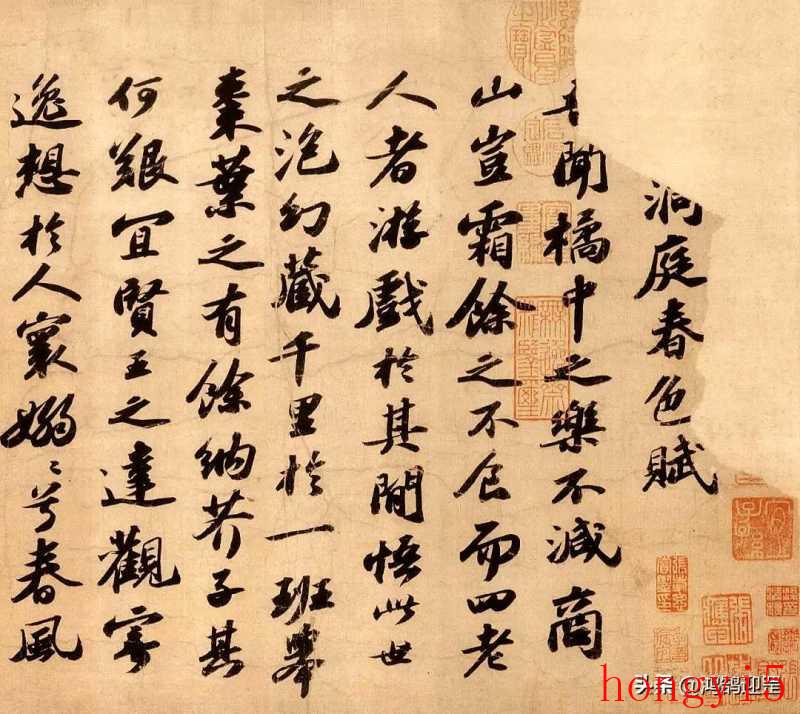 洞庭春色賦
聞橘中之樂不減商
山豈霜餘之不食而四老
人者游戲於其閒悟此世
之泡幻藏千里於一班舉
棗葉之有餘納芥子其
何艱宜賢王之達觀寄
逸想於人寰嫋〻兮春風
头条 @鸿鹄迎
hongyi5